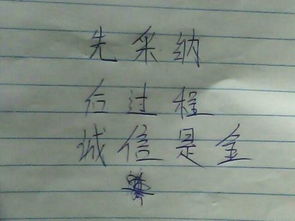 先采纳
后过程
诚信是金